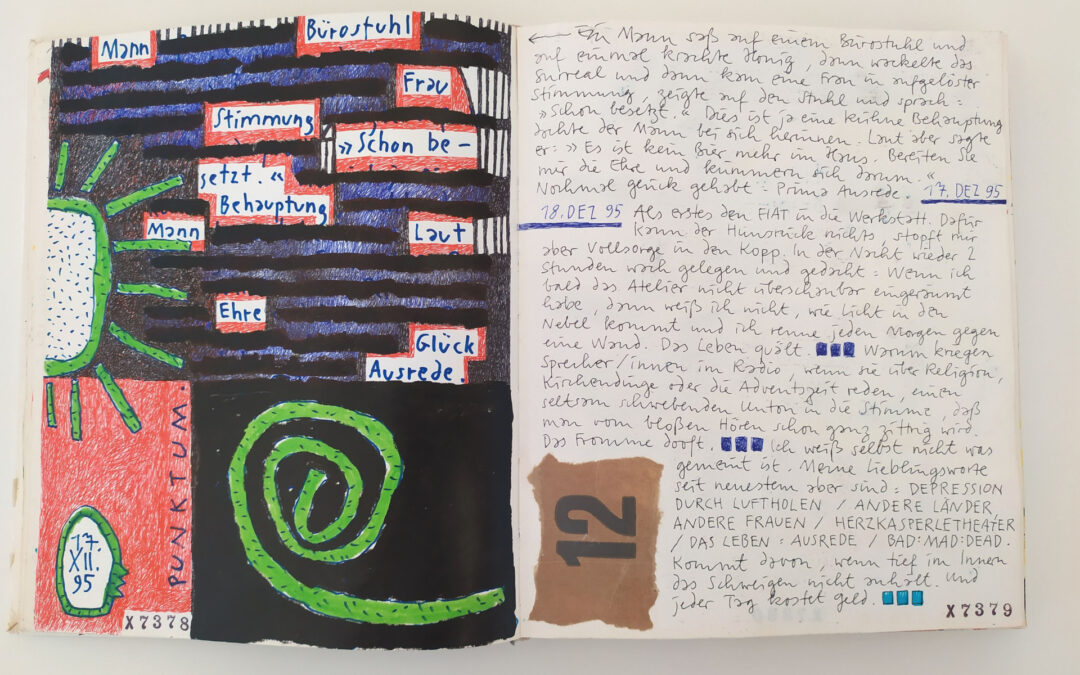 Mann
Bürostuhl
Frau
Stimmung
»Schon be-
setzt.“
Behauptung
Mann
Laut
Ehre
Glück
Ausrede.
PUNKTUM.
17.
XII.
95
X7378
← Ein Mann saß auf einem Bürostuhl und
auf einmal krachte Honig, dann wackelte das
surreal und dann kam eine Frau in aufgelöster
Stimmung, zeigte auf den Stuhl und sprach:
»Schon besetzt.“ Dies ist ja eine kühne Behauptung
dachte der Mann bei sich herinnen. Laut aber sagte
er: »Es ist kein Bier mehr im Haus. Bereiten Sie
mir die Ehre und kümmern sich darum.“
Nochmal gehabt: Prima Ausrede. 17. DEZ 95
18. DEZ 95 Als erstes den FIAT in die Werkstatt. Dafür
kann der Hunsrück nichts, stopft mir
aber Vollsorge in den Kopp. In der Nacht wieder 2
Stunden wach gelegen und gedacht: Wenn ich
bald das Atelier nicht überschaubar eingeräumt
habe, dann weiß ich nicht, wie Licht in den
Nebel kommt und ich renne jeden Morgen gegen
eine Wand. Das Leben quält. Warum kriegen
Sprecher/innen im Radio, wenn sie über Religion,
Kirchendinge oder die Adventszeit reden, einen
seltsam schwebenden Unton in die Stimme, daß
man vom bloßen Hören schon ganz zittrig wird.
Das Fromme dooft. Ich weiß selbst nicht was
gemeint ist. Meine Lieblingsworte
seit neuestem aber sind: DEPRESSION
DURCH LUFTHOLEN / ANDERE LÄNDER
ANDERE FRAUEN / HERZKASPERLETHEATER
/ DAS LEBEN: AUSREDE / BAD:MAD:DEAD.
Kommt davon, wenn tief im Innern
das Schweigen nicht anhält. Und
jeder Tag kostet Geld.
12
X7379